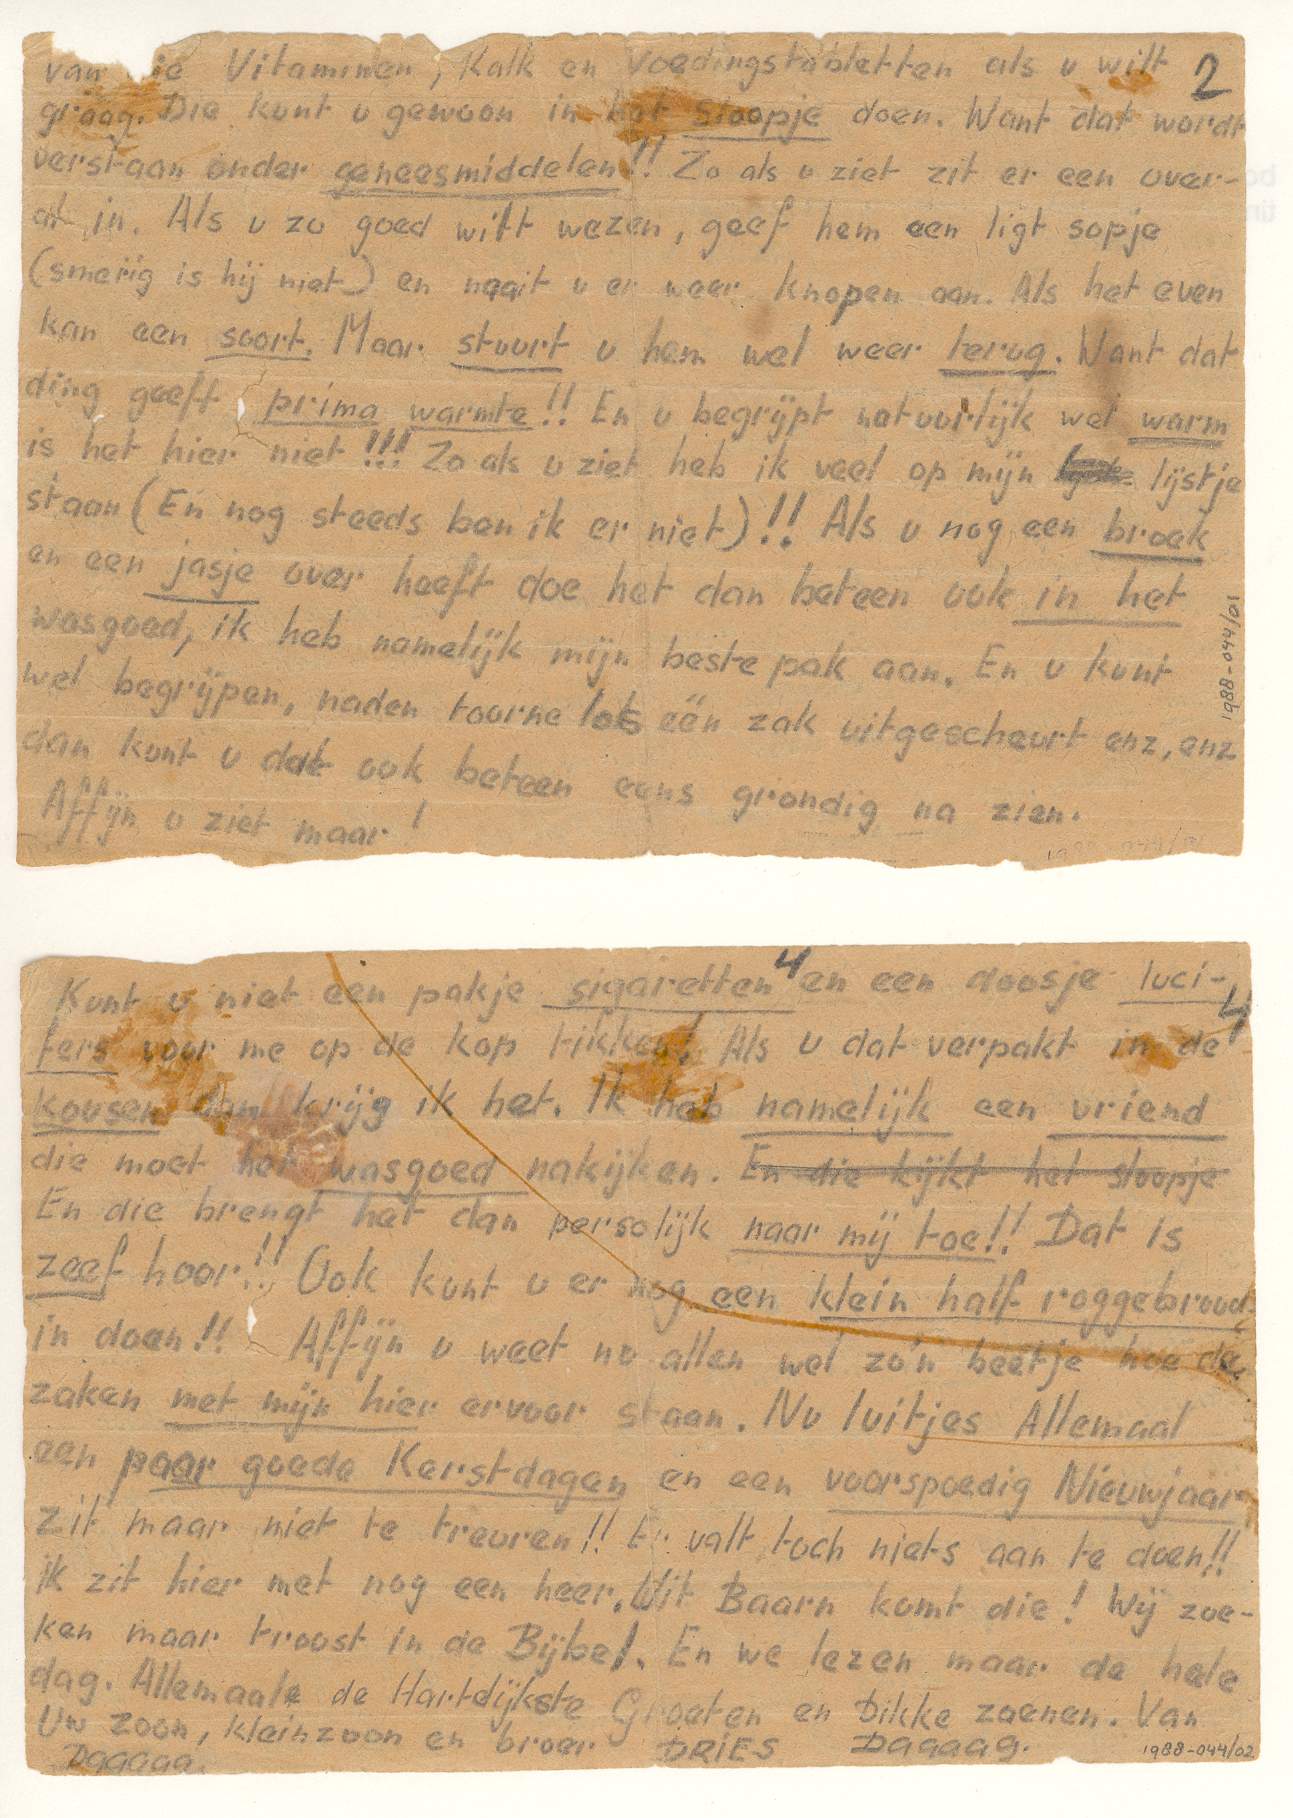 2
van die Vitaminen, Kalk en Voedingstabletten als u wilt
graag. Die kunt u gewoon in het sloopje doen. Want dat wordt
verstaan onder geneesmiddelen!! Zo als u ziet zit er een over-
al in. Als u zo goed wilt wezen, geef hem een ligt sopje
(smerig is hij niet) en naait u er weer knopen aan. Als het even
kan een soort. Maar stuurt u hem wel weer terug. Want dat
ding geeft prima warmte!! En u begrijpt natuurlijk wel warm
is het hier niet!!! Zo als u ziet heb ik veel op mijn lijstje
staan (En nog steeds ben ik er niet)!! Als u nog een broek
en een jasje over heeft doe het dan beteen ook in het
wasgoed, ik heb namelijk mijn beste pak aan. En u kunt
wel begrijpen, naden toorne los één zak uitgescheurt enz, enz
dan kunt u dat ook beteen eens grondig na zien.
Affijn u ziet maar!
1988-044/01
4
Kunt u niet een pakje sigaretten en een doosje luci-
4
fers voor me op de kop tikken! Als u dat verpakt in de
kousen dan krijg ik het. Ik heb namelijk een vriend
die moet het wasgoed nakijken. En die kijkt het sloopje
En die brengt het dan persolijk naar mij toe!! Dat is
zeef hoor!! Ook kunt u er nog een klein half roggebrood
in doen!! Affijn u weet nu allen wel zo'n beetje hoe de
zaken met mijn hier ervoor staan. Nu luitjes Allemaal
een paar goede Kerstdagen en een voorspoedig Nieuwjaar
zit maar niet te treuren!! Er valt toch niets aan te doen!!
ik zit hier met nog een heer. Uit Baarn komt die! Wij zoe-
ken maar troost in de Bijbel. En we lezen maar de hele
dag. Allemaal de Hartelijkste Groeten en Dikke zoenen. Van
Uw zoon, kleinzoon en broer DRIES Dagaag.
Dgaaag.
1988-044/02